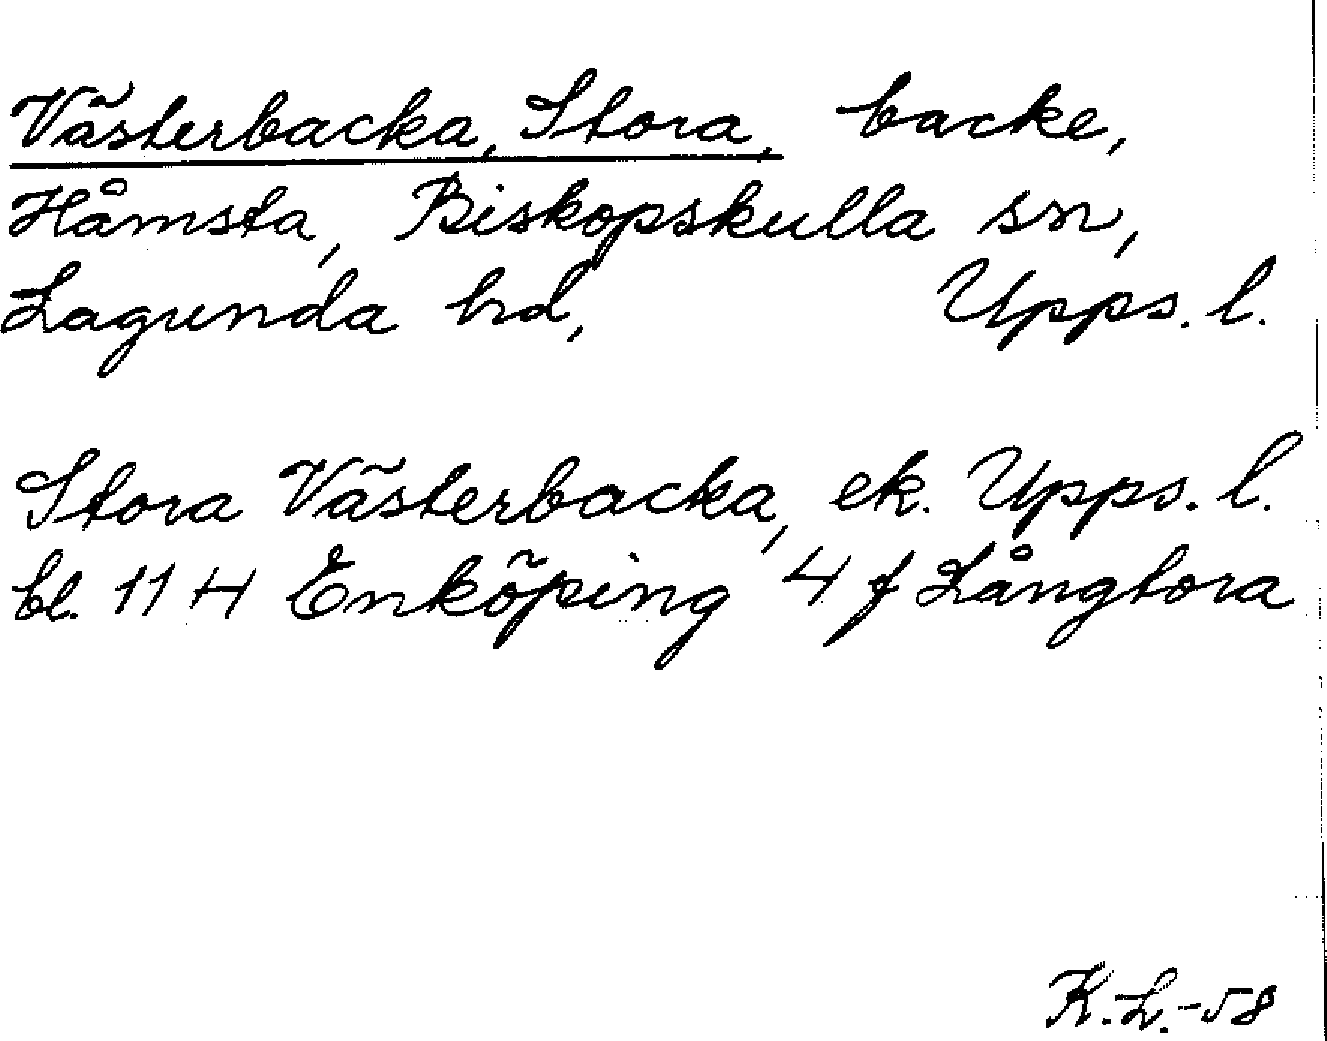 Västerbacka, Stora, backe,
Håmsta, Biskopskulla sn,
Lagunda hd, Upps. l.
Stora Västerbacka, ek. Upps. l.
bl. 11 H Enköping 4 f Långtora
K.L.-58